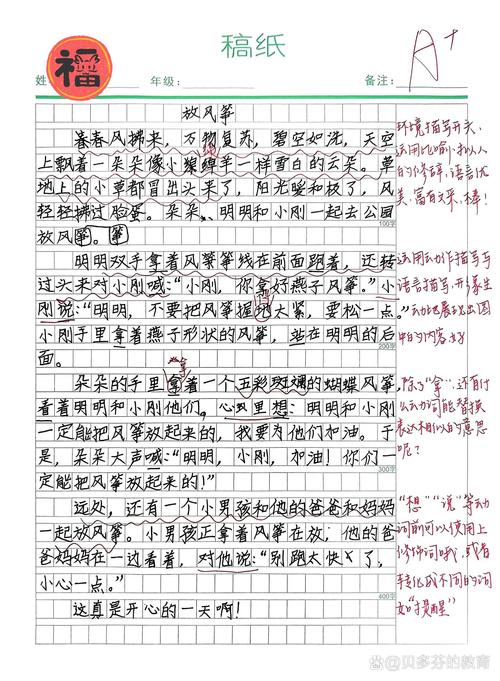 稿纸
福
姓
年级：
备注：
A+
放风筝
春春风拂来，万物复苏，碧空如洗，天空
上飘着一朵朵像小绵绵羊一样雪白的云朵。草
地上的小草都冒出头来了，阳光暖和极了，风
轻轻拂过脸蛋。朵朵、明明和小刚一起去公园
100字
放风筝。筝
明明双手拿着风筝筝线在前面跑着，还转
过头来对小刚喊：“小刚，你拿好燕子风筝。”小
刚说：“明明，不要把风筝握得太紧，要松一点。”
小刚手里拿着燕子形状的风筝，站在明明的后
200字
面。
拿
朵朵的手里拿着一个五彩斑斓的蝴蝶风筝
看着明明和小刚他们，心里想：明明和小刚
一定能把风筝放起来的，我要为他们加油。于
是，朵朵大声喊：“明明，小刚，加油！你们一
300字
定能把风筝放起来的！”
远处，还有一个小男孩和他的爸爸和妈妈
一起放风筝。小男孩正拿着风筝在放；他的爸
爸妈妈在一边看着，对他说：“别跑太快了，
小心一点。”
400字
这真是开心的一天啊！
环境描写开头，
运用比喻和拟人
的修辞，语言优
美，富有文采，棒！
运用动作描写与
语言描写，
生动地展现出图
中的内容
除了“拿”，还有什
么动词能替换
表达相似的意思
呢？
“想”“说”等动
词前可以使用上
修饰词哦，或者
转化成不同的词
如“提醒”
@贝多芬的教育